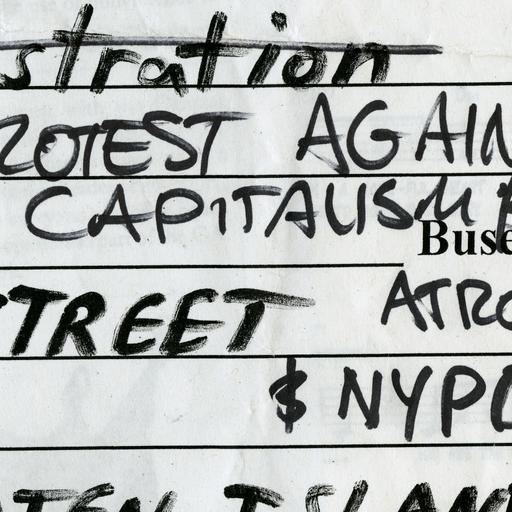 stration
ROTEST AGAIN
CAPITALISM
Buse
STREET ATRO
& NYPD
ATEN ISLAN